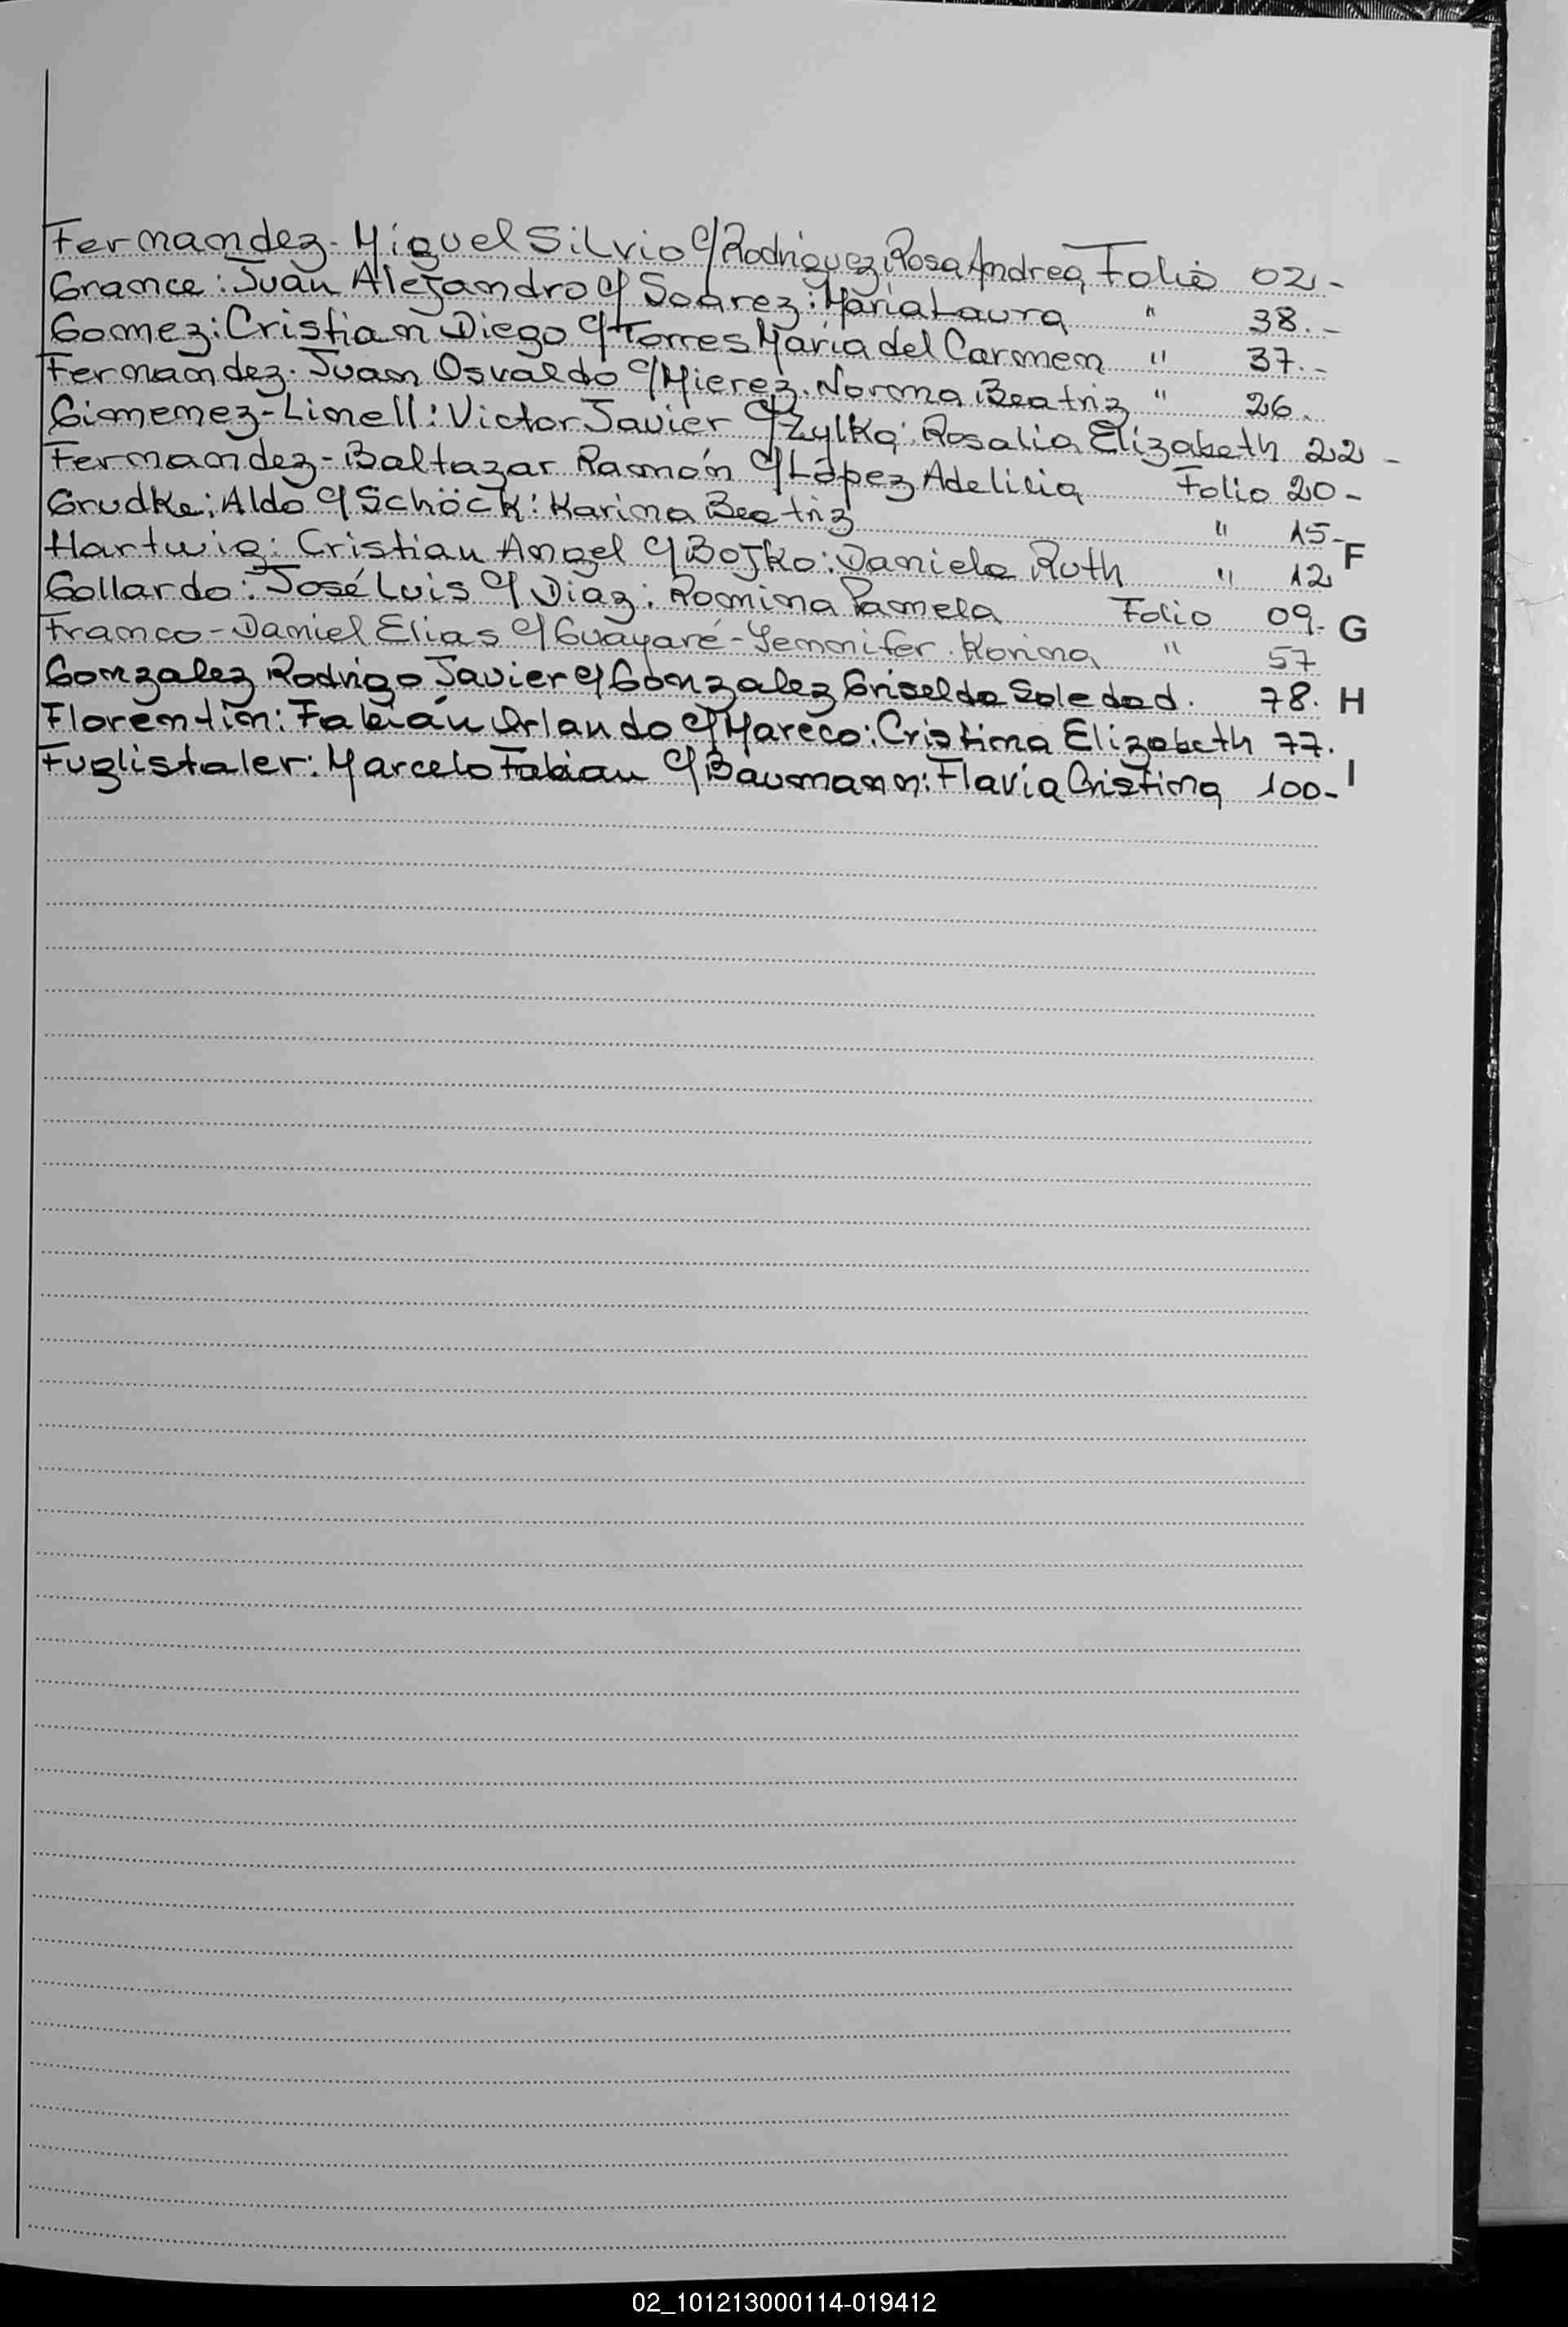 Fernandez- Miguel Silvio c/ Rodriguez, Rosa Andrea, Folio 02.-
Grance: Juan Alejandro c/ Soarez: María Laura " 38.-
Gomez: Cristian Diego c/ Torres María del Carmen " 37.-
Fernandez. Juan Osvaldo c/ Mierez. Norma Beatriz " 26.
Gimenez-Linell: Victor Javier c/ Zylka: Rosalia Elizabeth 22-
Fernandez-Baltazar Ramón c/ López Adelicia Folio 20-
Grudke: Aldo c/ Schöck: Karina Beatriz " 15-
F
Hartwig: Cristian Angel c/ Bojko: Daniela Ruth " 12
Gollardo: José Luis c/ Diaz: Romina Pamela Folio 09.
G
Franco-Daniel Elias c/ Guayaré-Yennifer. Korina " 57
Gonzalez Rodrigo Javier c/ Gonzalez Griselda Soledad. 78.
H
Florentín: Fabián Orlando c/ Mareco: Cristina Elizabeth 77.
Fuglistaler: Marcelo Fabian c/ Baumann: Flavia Cristina 100-
I
02_101213000114-019412